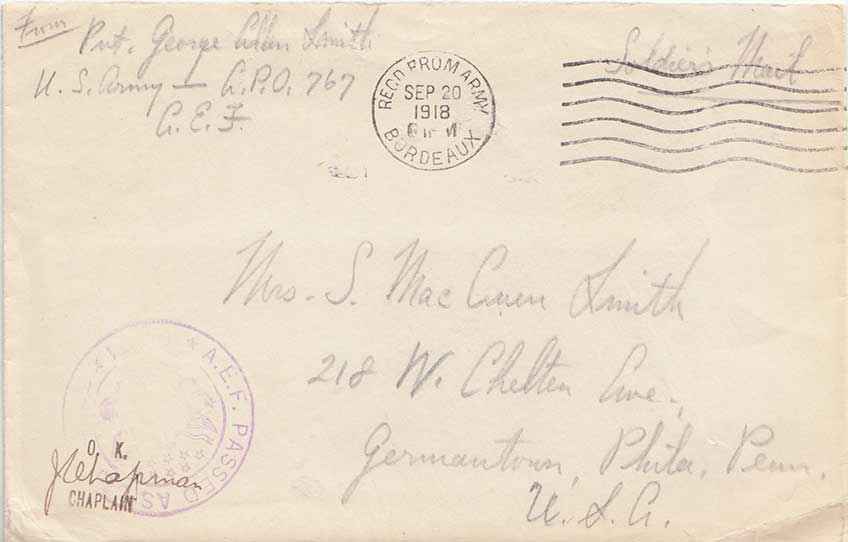 From
Pvt. George Allen Smith
U. S. Army — A.P.O. 767
A. E. F.
REC'D FROM ARMY
SEP 20
1918
BORDEAUX
Soldier's Mail
Mrs. S. Mac Cuen Smith
218 W. Chelten Ave.,
Germantown, Phila, Penn.
U. S. A.
A.E.F. PASSED AS
O. K.
J E Chapman
CHAPLAIN